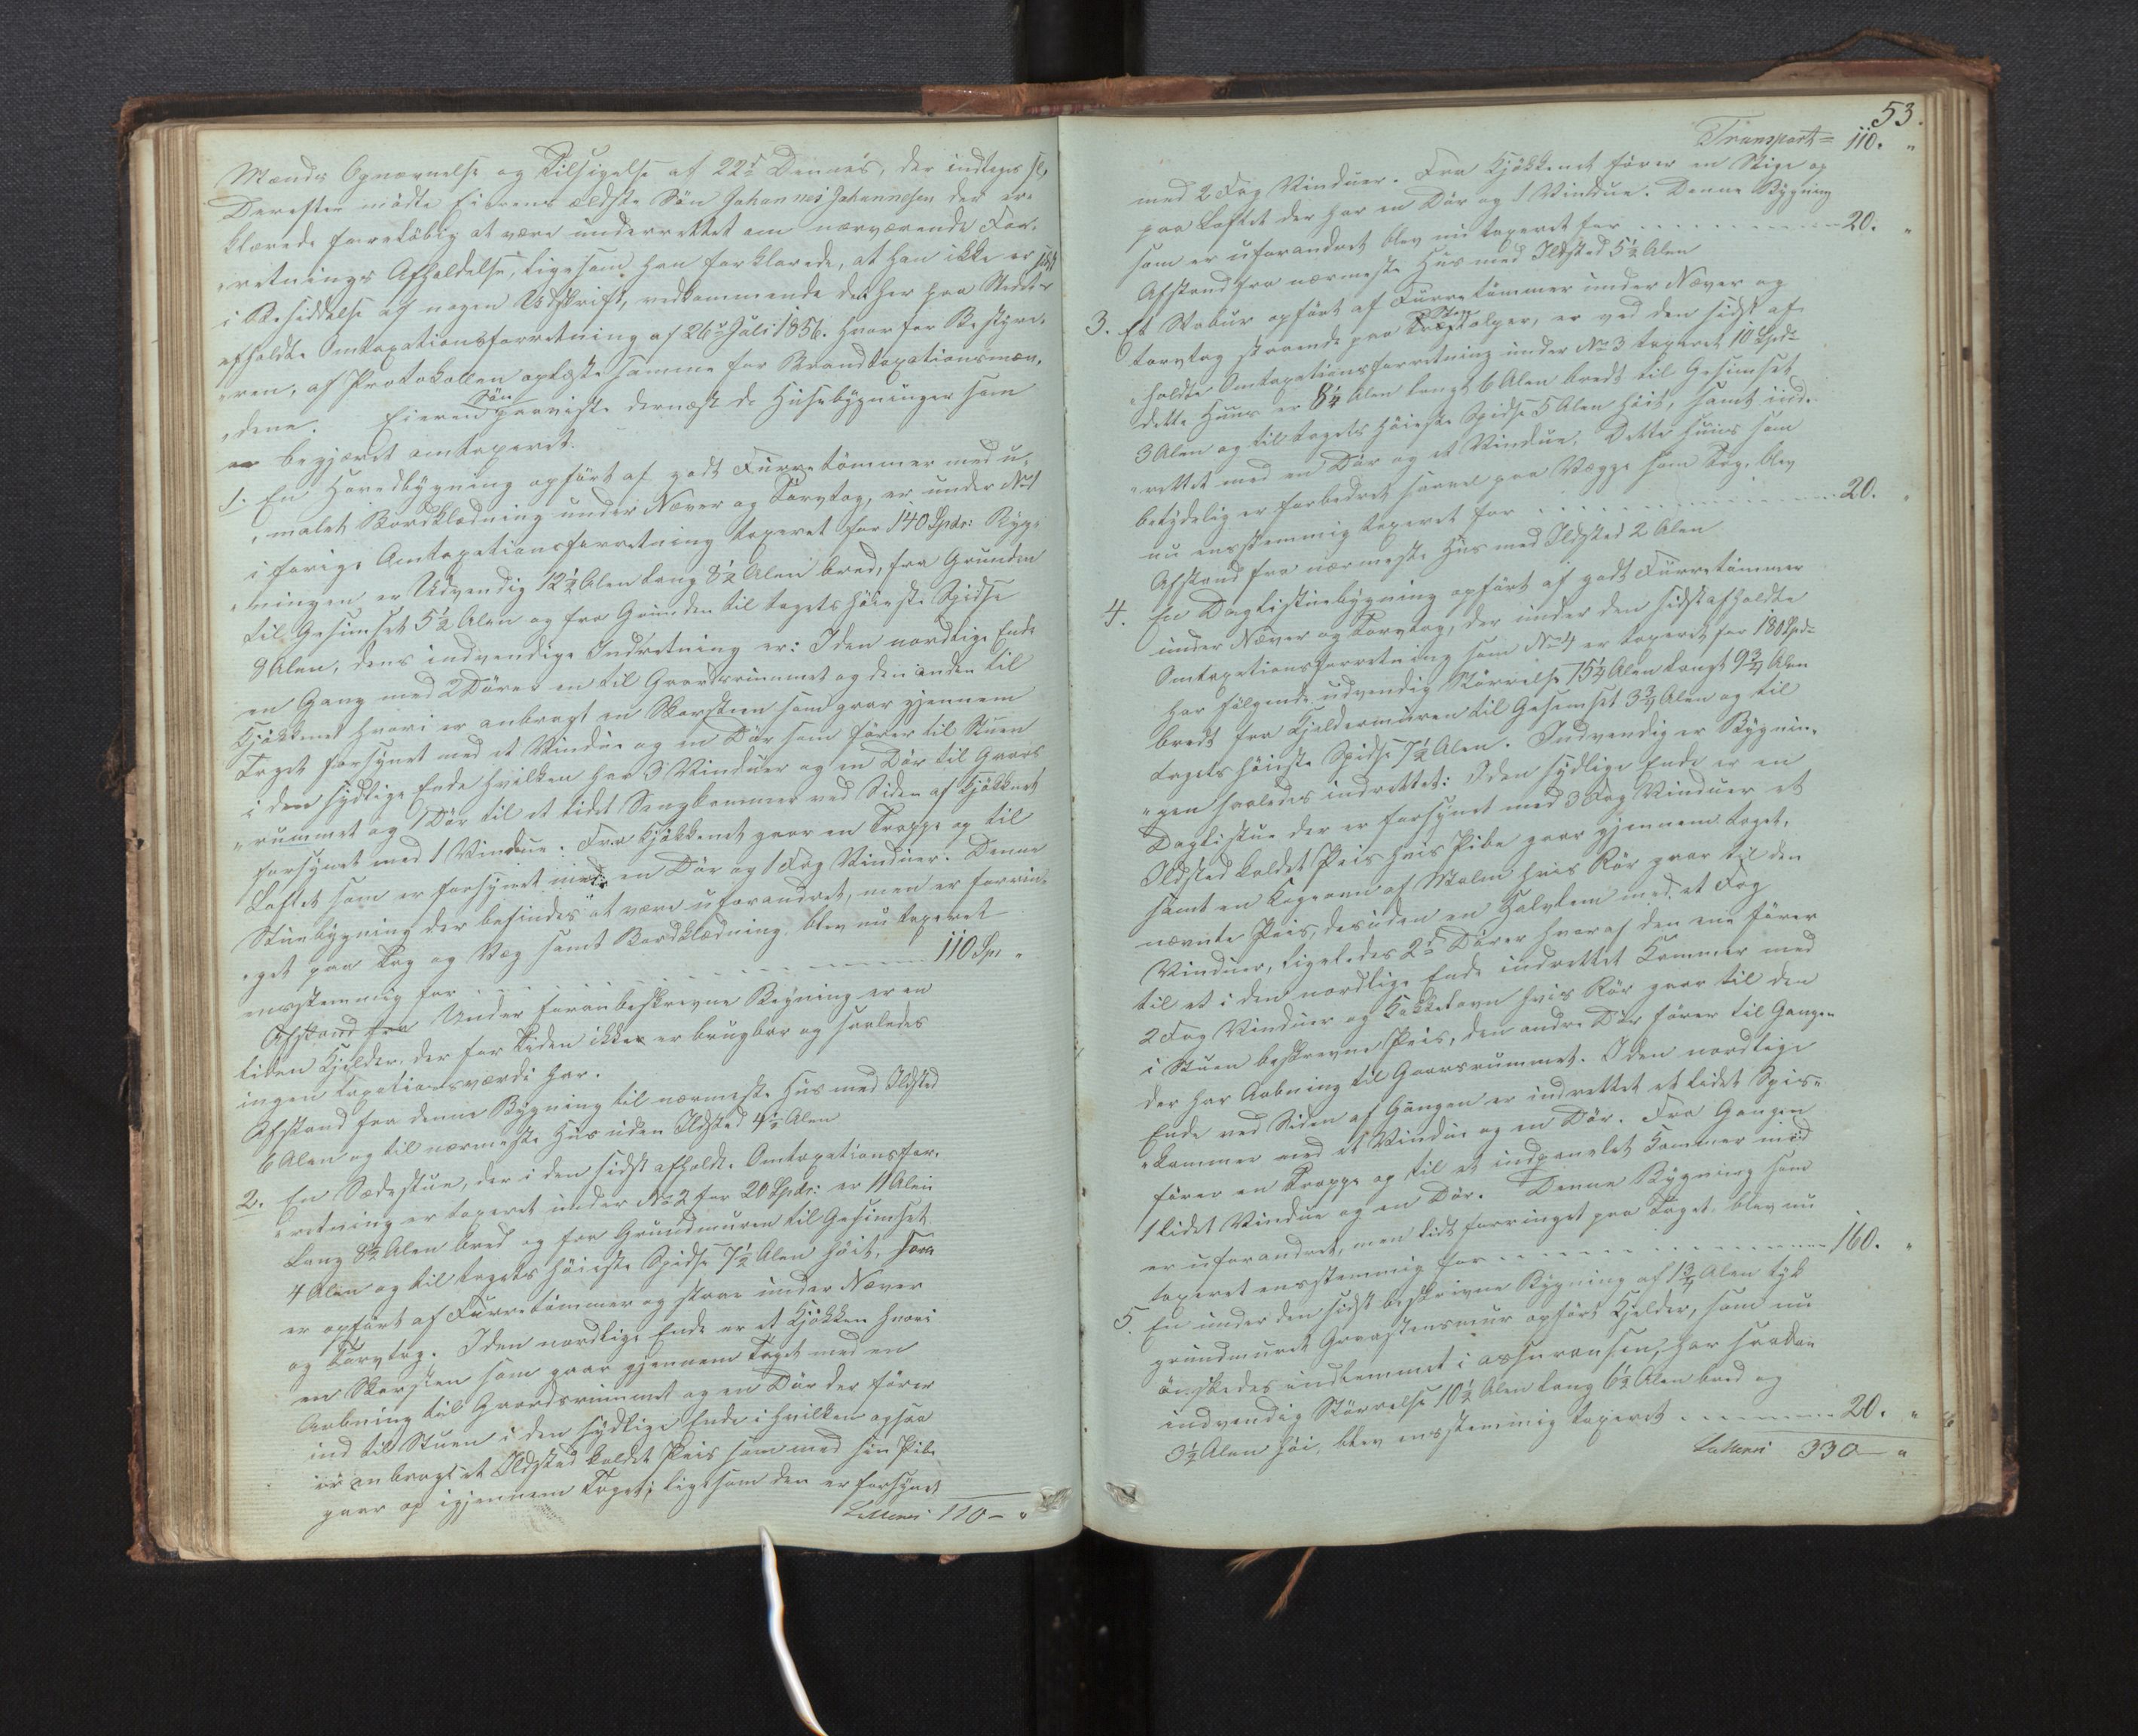 Mænds Opnævnelse og Tilsigelse af 22de Dennes, der indtages
Derefter mødte Eierens ældste Søn Johannes Johannesen der er-
klærede foreløbig at være underrettet om nærværende For-
retnings Afholdelse, ligesom han forklarede, at han ikke er
i Besiddelse af nogen Udskrift, vedkommende den her paa Stedet
afholdte Omtaxationsforretning af 26de Juli 1856. hvorfor Bestyre-
ren, af Protokollen oplæste samme for Brandtaxationsmæn-
dene. Eierens Søn paaviste dernæst de Huusebygninger som
er begjæret omtaxeret.
1. En Hovedbygning opført af godt Furretømmer med u-
malet Bordklædning under Næver og Torvtag, er under No 1
i forrige Omtaxationsforretning taxeret for 140 Spdr: Byg-
ningen er Udvendig 12½ Alen lang 8½ Alen bred, fra Grunden
til Gesimset 5½ Alen og fra Grunden til tagets høieste Spidse
8 Alen, dens indvendige Indretning er: I den nordlige Ende
en Gang med 2 Døre en til Gaardsrummet og den anden til
Kjøkkenet hvori er anbragt en Skorsteen som gaar gjennem
Taget forsynet med et Vindue og en Dør som fører til Stuen
i den sydlige Ende hvilken har 3 Vinduer og en Dør til Gaards
rummet og 1 Dør til et lidet Sengkammer ved Siden af Kjøkkenet
forsynet med 1 Vindue. Fra Kjøkkenet gaar en Trappe op til
Loftet som er forsynet med en Dør og 1 Fag Vinduer. Denne
Stuebygning der befindes at være uforandret, men er forrin-
get paa Tag og Væg samt Bordklædning blev nu taxeret
eensstemmig for . . . . . . 110 Sp. "
Afstand fra Under foranbeskrevne Bygning er en
liden Kjelder, der for Tiden ikke er brugbar og saaledes
ingen taxationsværdi har.
Afstand fra denne Bygning til nærmeste Huus med Ildsted
6 Alen og til nærmeste Huus uden Ildsted 4½ Alen
2. En Sædestue, der i den sidst afholdte Omtaxationsfor-
retning er taxeret under No 2 for 20 Spdr: er 11 Alen
Lang 8½ Alen bred og fra Grundmuren til Gesimset
4 Alen og til tagets høieste Spidse 7½ Alen høit,
er opført af Furretømmer og staar under Næver
og Torvtag. I den nordlige Ende er et Kjøkken hvori
en Skorsten som gaar gjennem Taget med en
Aabning til Gaardsrummet og en Dør der fører
ind til Stuen i den sydlige Ende i hvilken ogsaa
er anbragt et Ildsted kaldet Peis som med sin Pibe
gaar op igjennem Taget; ligesom den er forsynet
Lateris 110 – "
53.
Transport = 110. "
med 2 Fag Vinduer. Fra Kjøkkenet fører en Stige op
paa Loftet der har en Dør og 1 Vindue. Denne Bygning
som er uforandret blev nu taxeret for . . . . . . 20. "
Afstand fra nærmeste Huus med Ildsted 5½ Alen
3. Et Stabur opført af Furretømmer under Næver og
torvtag staaende paa Træstolper, er ved den sidst af-
holdte Omtaxationsforretning under No 3 taxeret 10 Spdr
dette Huus er 8¼ Alen langt 6 Alen bredt til Gesimset
3 Alen og til tagets høieste Spidse 5 Alen høit, samt ind-
rettet med en Dør og et Vindue. Dette Huus som
betydelig er forbedret saavel paa Vægge som Tag, blev
nu eensstemmig taxeret for . . . . . . 20. "
Afstand fra nærmeste Huus med Ildsted 2 Alen
4. En Daglistuebygning opført af godt Furretømmer
under Næver og Torvtag, der under den sidst afholdte
Omtaxationsforretning som No 4 er taxeret for 180 Spdr
har følgende udvendig Størrelse 15¼ Alen langt 9¾ Alen
bredt fra Kjeldermuren til Gesimset 3¾ Alen og til
tagets høieste Spidse 7½ Alen. Indvendig er Bygnin-
gen saaledes indrettet: I den sydlige Ende er en
Daglistue der er forsynet med 3 Fag Vinduer et
Ildsted kaldet Peis hvis Pibe gaar gjennem taget,
samt en Kogeovn af Malm hvis Rør gaar til den
nævnte Peis, desuden en Halvlem med et Fag
Vinduer, ligeledes 2de Dører hvoraf den ene fører
til et i den nordlige Ende indrettet Kammer med
2 Fag Vinduer og Kakkelovn hvis Rør gaar til den
i Stuen beskrevne Peis, den andre Dør fører til Gangen
der har Aabning til Gaardsrummet. I den nordlige
Ende ved Siden af Gangen er indrettet et lidet Spis-
kammer med et Vindue og en Dør. Fra Gangen
fører en Trappe op til et indpanelet Kammer med
1 lidet Vindue og en Dør. Denne Bygning som
er uforandret, men lidt forringet paa Taget, blev nu
taxeret eensstemmig for . . . . . . 160. "
5. En under den sidst beskrevne Bygning af 1¾ Alen tyk
grundmuret Graastensmuur opført Kjelder, som nu
ønskedes indlemmet i assuransen, har saadan
indvendig Størrelse 10½ Alen lang 6½ Alen bred og
3½ Alen høi, blev eensstemmig taxeret . . . . . . 20. "
Lateris 330 – "